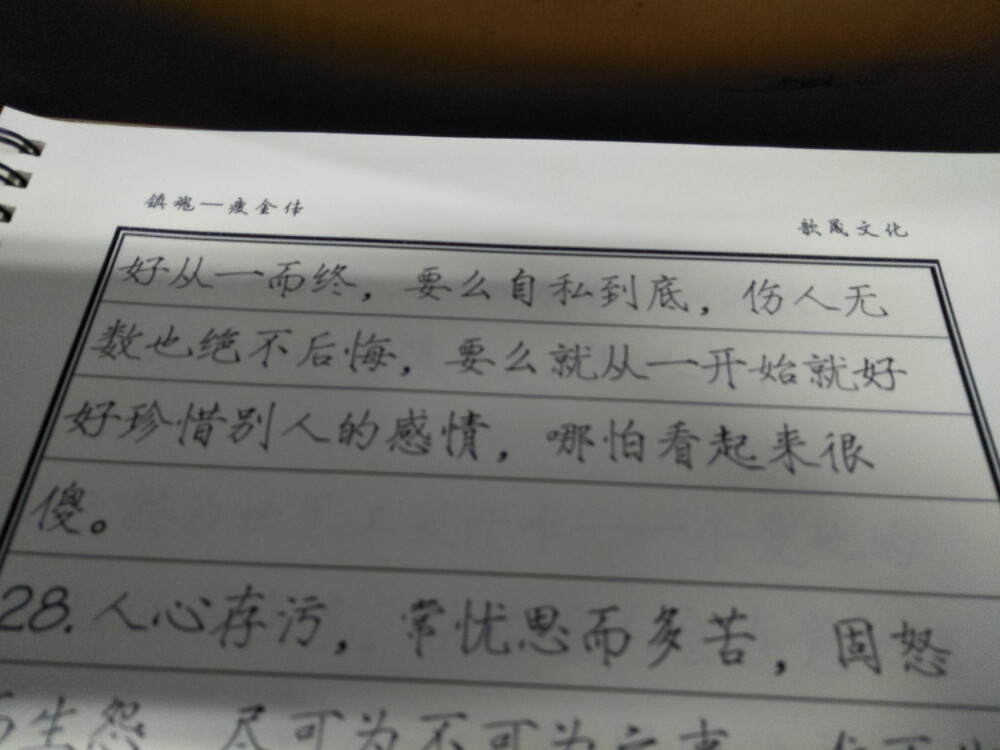 镇魂—瘦金体
歆晟文化
好从一而终，要么自私到底，伤人无
数也绝不后悔，要么就从一开始就好
好珍惜别人的感情，哪怕看起来很
傻。
28.人心存污，常忧思而多苦，固怒
而生怨，尽可为不可为之事